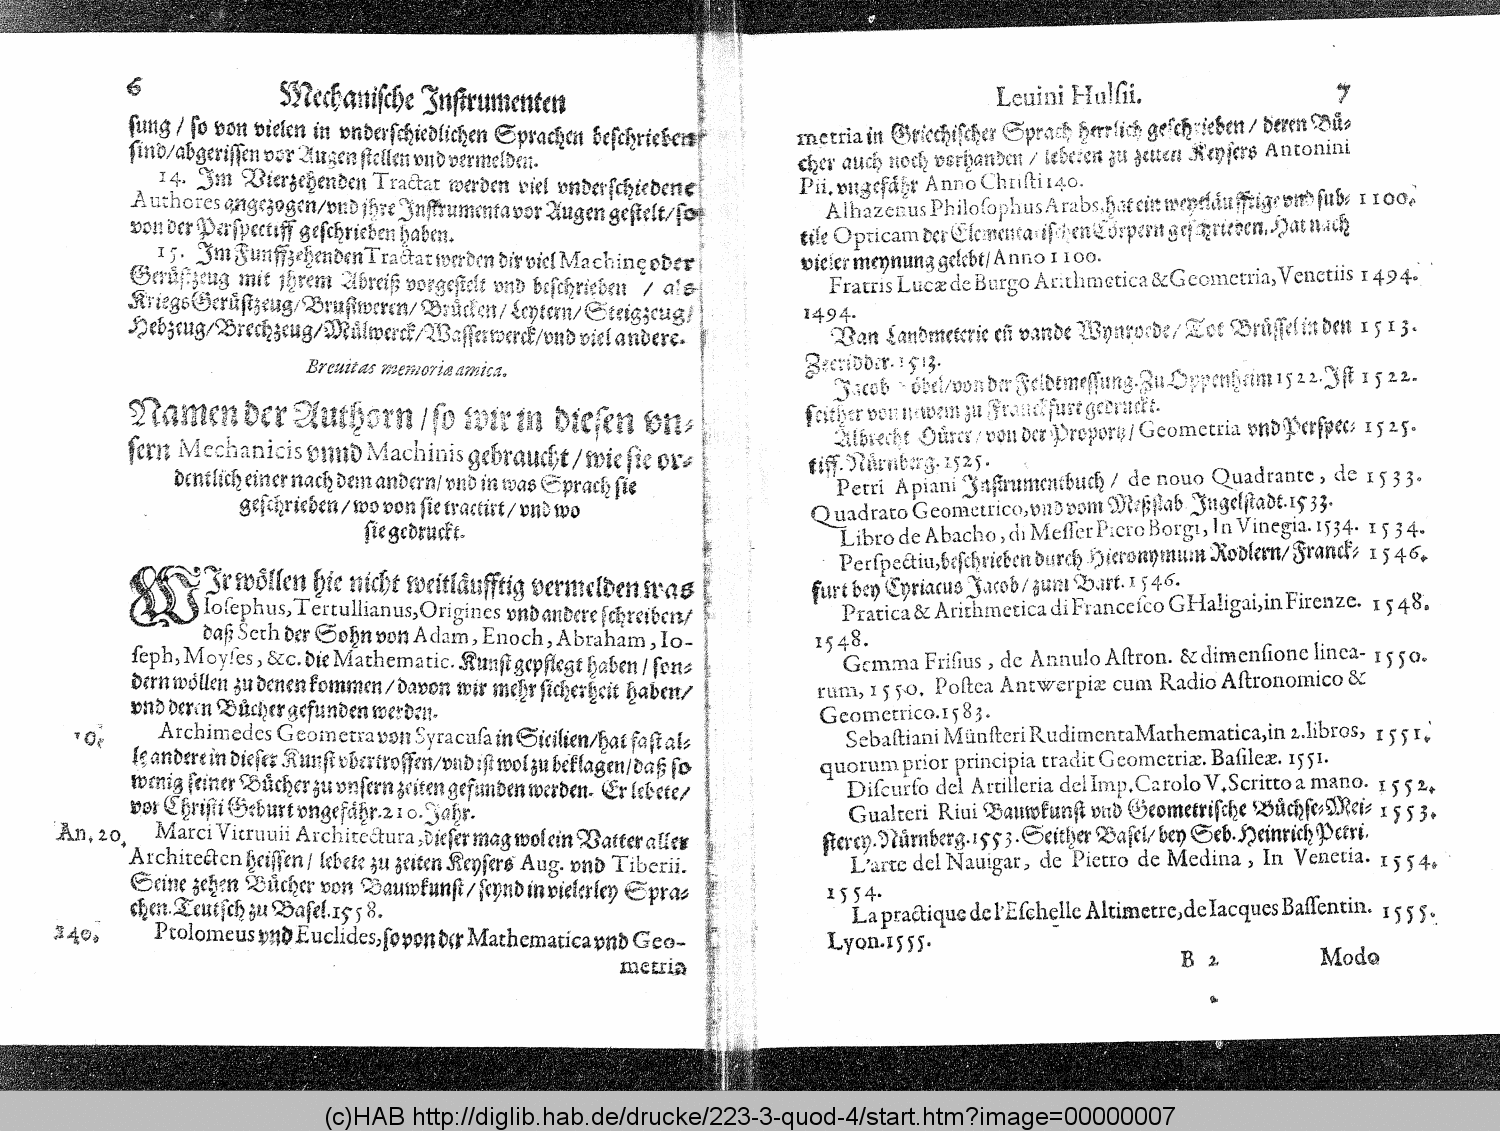 6 Mechanische Instrumenten
sung / so von vielen in vnderschiedlichen Sprachen beschrieben
sind/abgerissen vor Augen stellen vnd vermelden.
14. Im Vierzehenden Tractat werden viel vnderschiedene
Authores angezogen/vnd jhre Instrumenta vor Augen gestelt/so
von der Perspectiff geschrieben haben.
15. Im Funffzehenden Tractat werden dir viel Machine oder
Gerüstzeug mit jhrem Abreiß vorgestelt vnd beschrieben / als
KriegsGerüstzeug/Brustweren/Brücken/Leytern/Steigzeug/
Hebzeug/Brechzeug/Mülwerck/Wasserwerck/vnd viel andere.
Breuitas memoriæ amica.
Namen der Authorn / so wir in diesen vn-
sern Mechanicis vnnd Machinis gebraucht / wie sie or-
dentlich einer nach dem andern/ vnd in was Sprach sie
geschrieben / wo von sie tractirt / vnd wo
sie gedruckt.
WIr wöllen hie nicht weitläufftig vermelden was
Iosephus, Tertullianus, Origines vnd andere schreiben/
daß Seth der Sohn von Adam, Enoch, Abraham, Io-
seph, Moyses, &c. die Mathematic. Kunst gepflegt haben / son-
dern wöllen zu denen kommen / davon wir mehr sicherheit haben/
vnd deren Bücher gefunden werden.
Archimedes Geometra von Syracusa in Sicilien/hat fast al-
le andere in dieser Kunst vbertroffen/vnd ist wol zu beklagen/daß so
wenig seiner Bücher zu vnsern zeiten gefunden werden. Er lebete/
vor Christi Geburt vngefähr. 210. Jahr.
An. 20. Marci Vitruuii Architectura, dieser mag wol ein Vatter aller
Architecten heissen / lebete zu zeiten Keysers Aug. vnd Tiberii.
Seine zehen Bücher von Bauwkunst / seynd in vielerley Spra-
chen. Teutsch zu Basel. 1558.
140. Ptolomeus vnd Euclides, so von der Mathematica vnd Geo-
metria
Leuini Hulsii. 7
metria in Griechischer Sprach herrlich geschrieben / deren Bü-
cher auch noch vorhanden / lebeten zu zeiten Keysers Antonini
Pii. vngefähr Anno Christi 140.
Alhazenus Philosophus Arabs, hat ein weytläufftige vnd sub- 1100.
tile Opticam der Elementarischen Cörpern geschrieben. Hat nach
vieler meynung gelebt/ Anno 1100.
Fratris Lucæ de Burgo Arithmetica & Geometria, Venetiis 1494.
1494.
Van Landmeterie eñ vande Wynroede / Tot Brüssel in den 1513.
Zeeridder. 1513.
Jacob Köbel/von der Feldtmessung. Zu Oppenheim 1522. Ist 1522.
seither von newem zu Franckfurt gedruckt.
Albrecht Dürer / von der Proportz / Geometria vnd Perspec- 1525.
tiff. Nürnberg. 1525.
Petri Apiani Instrumentbuch / de nouo Quadrante, de 1533.
Quadrato Geometrico, vnd vom Meßstab Ingelstadt. 1533.
Libro de Abacho, di Messer Piero Borgi, In Vinegia. 1534. 1534.
Perspectiu, beschrieben durch Hieronymum Rodlern / Franck- 1546.
furt bey Cyriacus Jacob / zum Bart. 1546.
Pratica & Arithmetica di Francesco GHaligai, in Firenze. 1548.
1548.
Gemma Frisius, de Annulo Astron. & dimensione linea- 1550.
rum, 1550. Postea Antwerpiæ cum Radio Astronomico &
Geometrico. 1583.
Sebastiani Münsteri Rudimenta Mathematica, in 2. libros, 1551.
quorum prior principia tradit Geometriæ. Basileæ. 1551.
Discurso del Artilleria del Imp. Carolo V. Scritto a mano. 1552.
Gualteri Riui Bauwkunst vnd Geometrische Büchse-Mei- 1553.
sterey. Nürnberg. 1553. Seither Basel / bey Seb. Heinrich Petri.
L'arte del Nauigar, de Pietro de Medina, In Venetia. 1554.
1554.
La practique de l'Eschelle Altimetre, de Iacques Bassentin. 1555.
Lyon. 1555.
B 2 Modo
(c)HAB http://diglib.hab.de/drucke/223-3-quod-4/start.htm?image=00000007